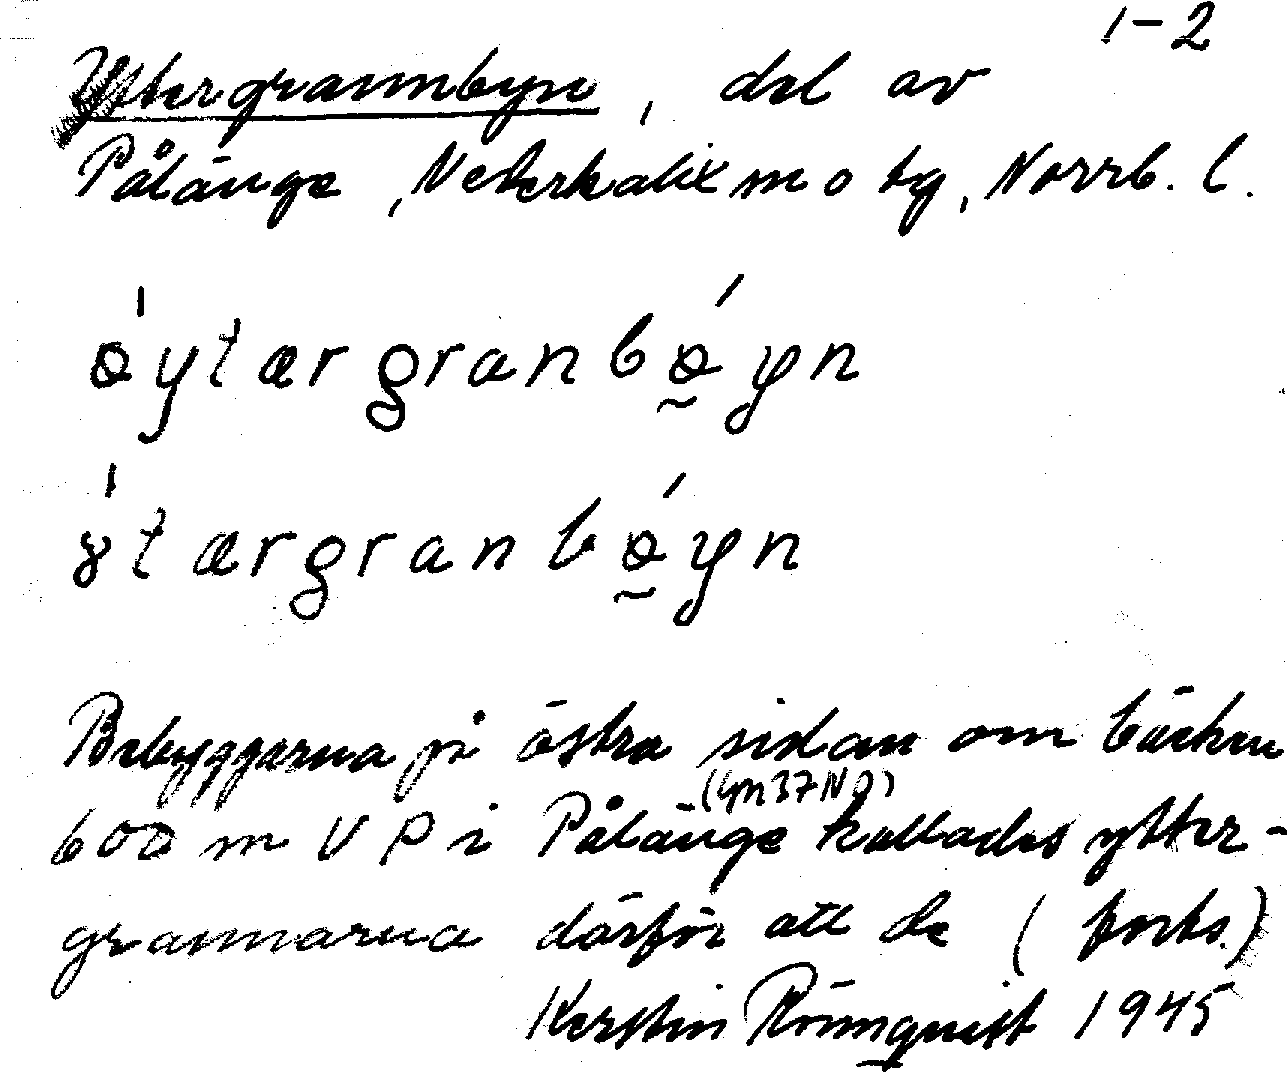 1-2
Yttergrannbyn, del av
Pålänge, Nederkalix sn o tg, Norrb. l.
ǿytærgranbǿ̰yn
ɣ́tærgranbǿ̰yn
Bebyggarna på östra sidan om bäcken
(4m37NO)
600 m V P i Pålänge kallades ytter-
grannarna därför att de (forts.)
Kerstin Rönnquist 1945